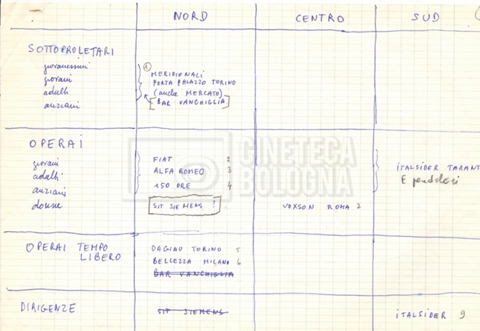 NORD CENTRO SUD
SOTTOPROLETARI
giovanissimi
giovani
adulti
anziani
MERIDIONALI
PORTA PALAZZO TORINO
(anche MERCATO)
BAR VANCHIGLIA
OPERAI
giovani
adulti
anziani
donne
FIAT 2
ALFA ROMEO 3
150 ORE 4
SIT SIEMENS ?
VOXSON ROMA 2
ITALSIDER TARANT
E pendolari
CINETECA
BOLOGNA
OPERAI TEMPO
LIBERO
TORINO 5
BELLEZZA MILANO 6
BAR VANCHIGLIA
DIRIGENZE
SIT SIEMENS
ITALSIDER 9